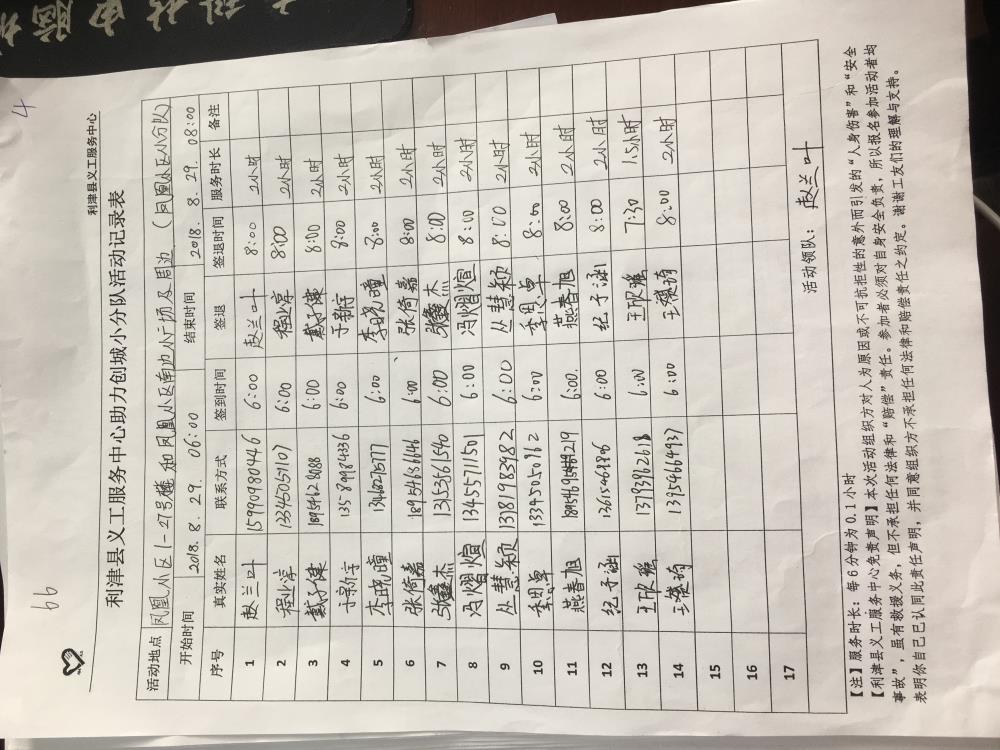 66
4
利津县义工服务中心
利津县义工服务中心助力创城小分队活动记录表
活动地点 凤凰小区1-27号楼和凤凰小区南边小广场及周边 (凤凰小区小分队)
开始时间 2018.8.29. 06:00 结束时间 2018.8.29. 08:00
序号 真实姓名 联系方式 签到时间 签退 签退时间 服务时长 备注
1 赵兰叶 15990980446 6:00 赵兰叶 8:00 2小时
2 程业淳 13345051107 6:00 程业淳 8:00 2小时
3 戴子健 18954628088 6:00 戴子健 8:00 2小时
4 于新守 13589984336 6:00 于新守 8:00 2小时
5 李晓瞳 6:00 李晓瞳 8:00 2小时
6 张倚嘉 18954686646 6:00 张倚嘉 8:00 2小时
7 张鑫杰 13153661540 6:00 张鑫杰 8:00 2小时
8 冯熠煊 13455711501 6:00 冯熠煊 8:00 2小时
9 丛慧颖 13181983982 6:00 丛慧颖 8:00 2小时
10 季思卓 13345050762 6:00 季思卓 8:00 2小时
11 燕春旭 6:00. 燕春旭 8:00 2小时
12 纪子涵 13615469806 6:00 纪子涵 8:00 2小时
13 13793962618 6:00 7:30 1.5小时
14 13954664937 6:00 8:00 2小时
15
16
17
活动领队: 赵兰叶
【注】服务时长:每6分钟为0.1小时
【利津县义工服务中心免责声明】本次活动组织方对人为原因或不可抗拒性的意外而引发的“人身伤害”和“安全
事故”,虽有救援义务,但不承担任何法律和“赔偿”责任。参加者必须对自身安全负责,所以报名参加活动者均
表明你自己已认同此责任声明,并同意组织方不承担任何法律和赔偿责任之约定。谢谢工友们的理解与支持。